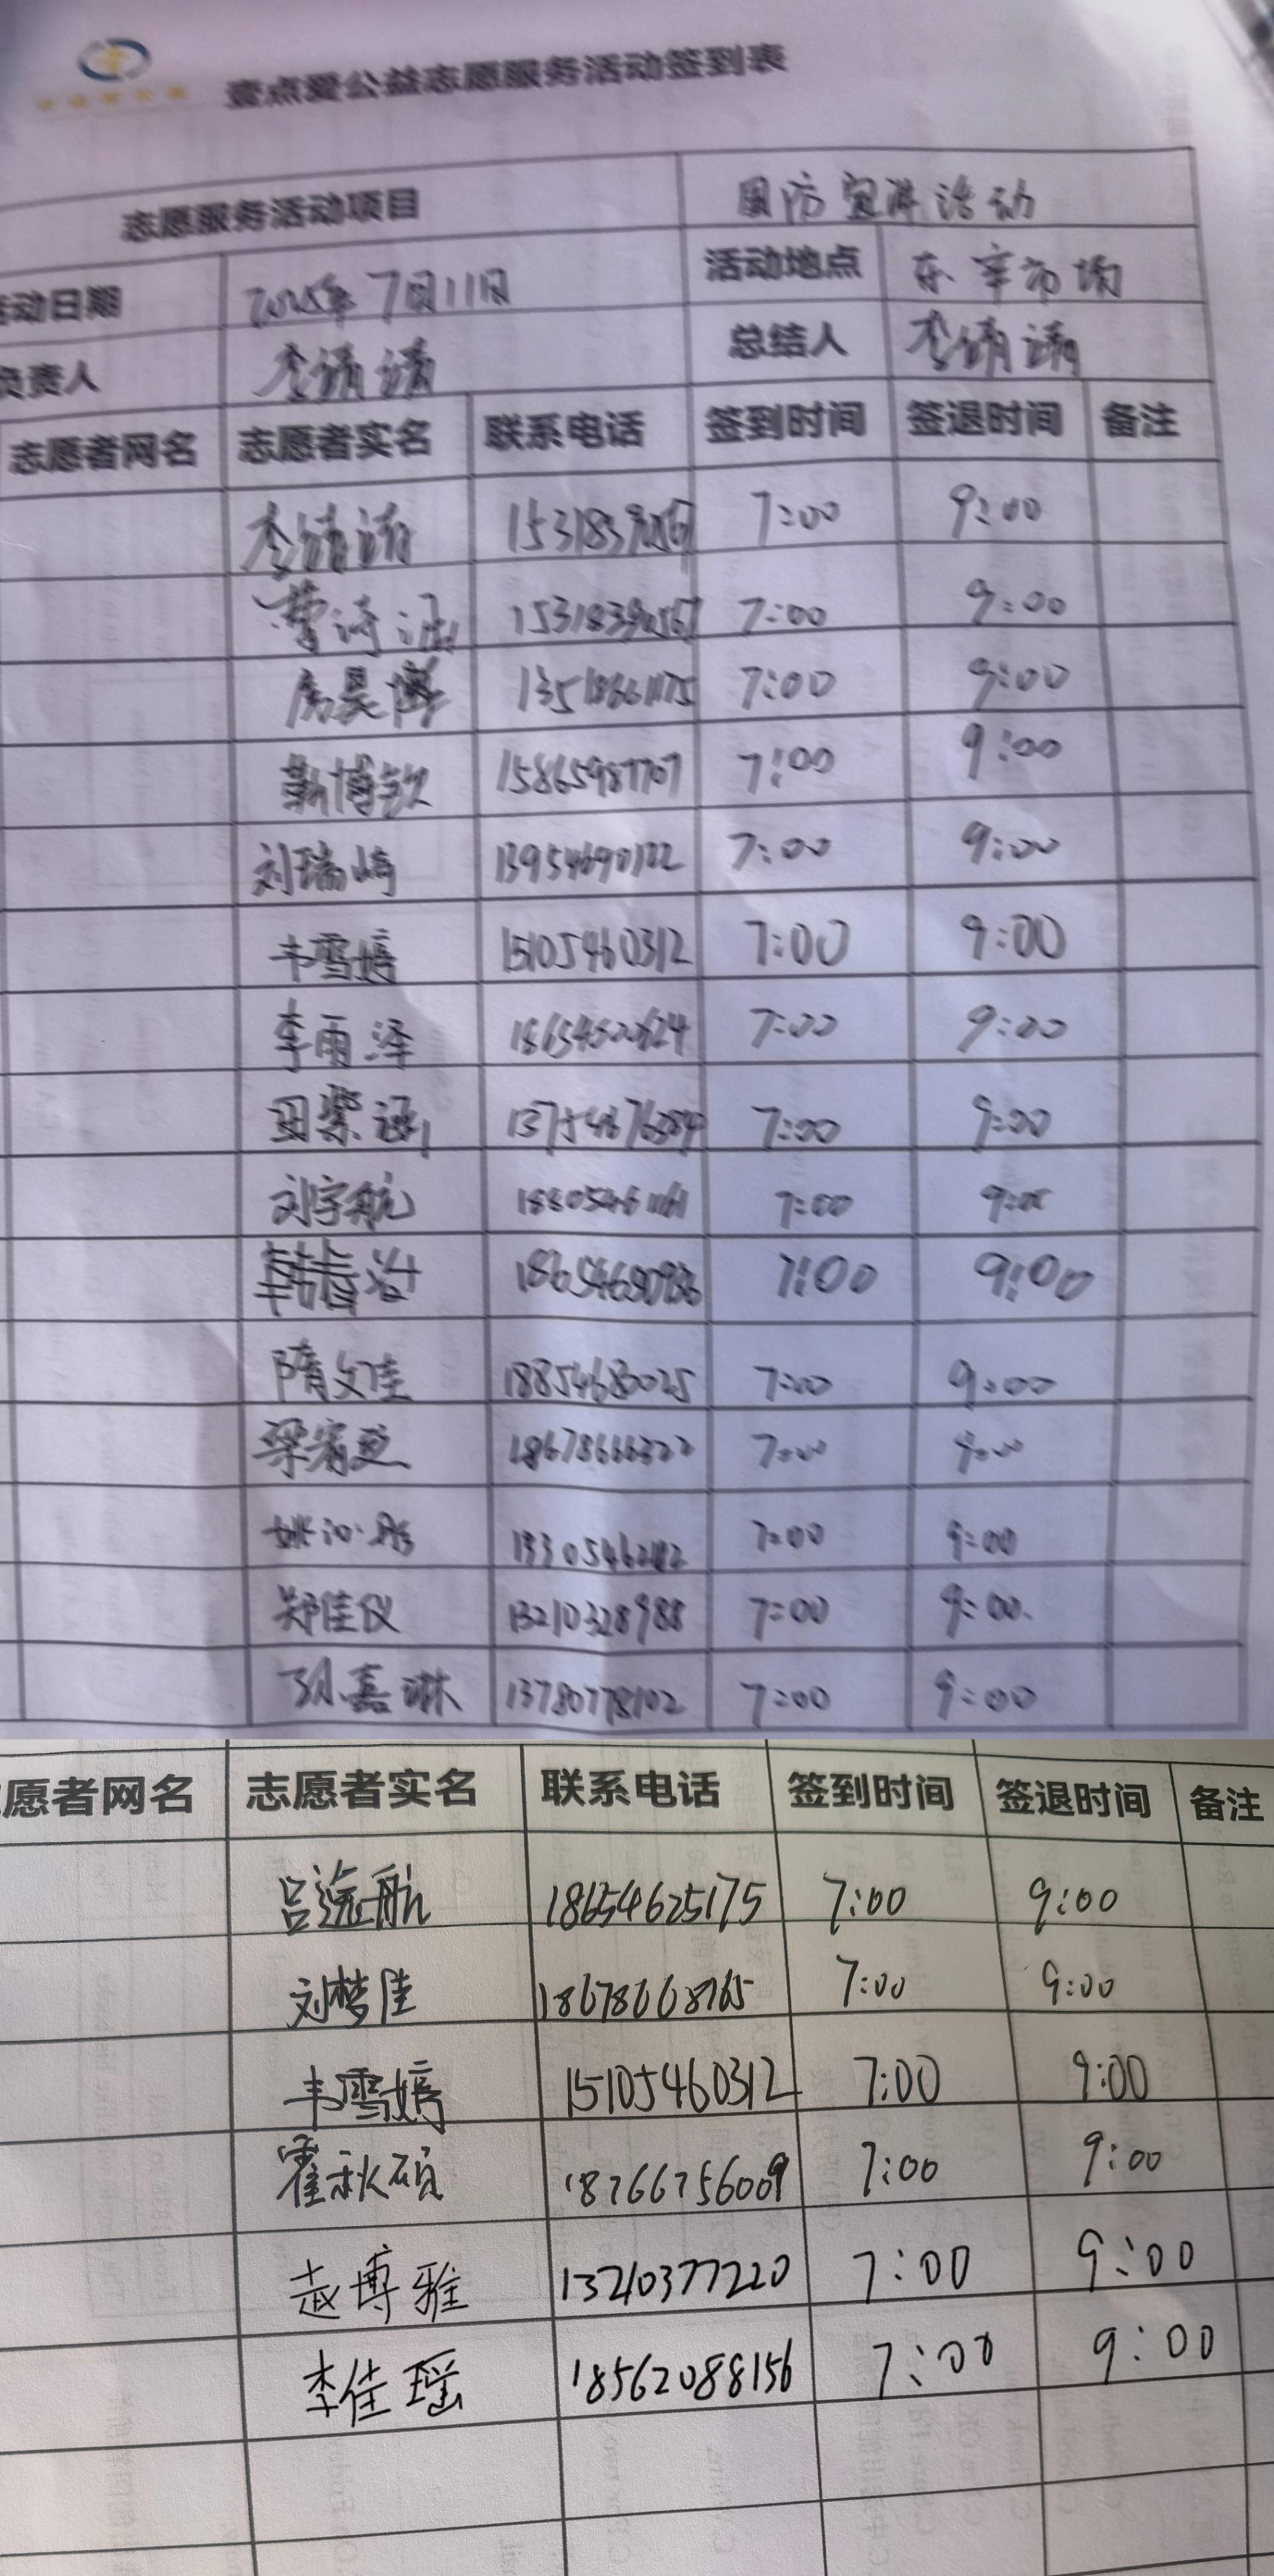 壹点爱公益志愿服务活动签到表
志愿服务活动项目 国防宣讲活动
活动日期 2025年7月11日 活动地点 东辛市场
负责人 李靖靖 总结人 李靖靖
志愿者网名 志愿者实名 联系电话 签到时间 签退时间 备注
李靖靖 7:00 9:00
曹诗涵 7:00 9:00
房昊博 7:00 9:00
靳博钦 15865987707 7:00 9:00
刘瑞崎 13954690122 7:00 9:00
韦雪婷 15105460312 7:00 9:00
李雨泽 7:00 9:00
田紫涵 7:00 9:00
刘宇航 7:00 9:00
韩春 7:00 9:00
隋文佳 18854680025 7:00 9:00
18678666322 7:00 9:00
姚沁彤 7:00 9:00
郑佳仪 13210328988 7:00 9:00.
孙嘉琳 13780778102 7:00 9:00
愿者网名 志愿者实名 联系电话 签到时间 签退时间 备注
吕 航 18654625175 7:00 9:00
刘梦佳 18678668765 7:00 9:00
韦雪婷 15105460312 7:00 9:00
霍秋硕 18766756009 7:00 9:00
赵博雅 13210377220 7:00 9:00
李佳瑶 18562088156 7:00 9:00